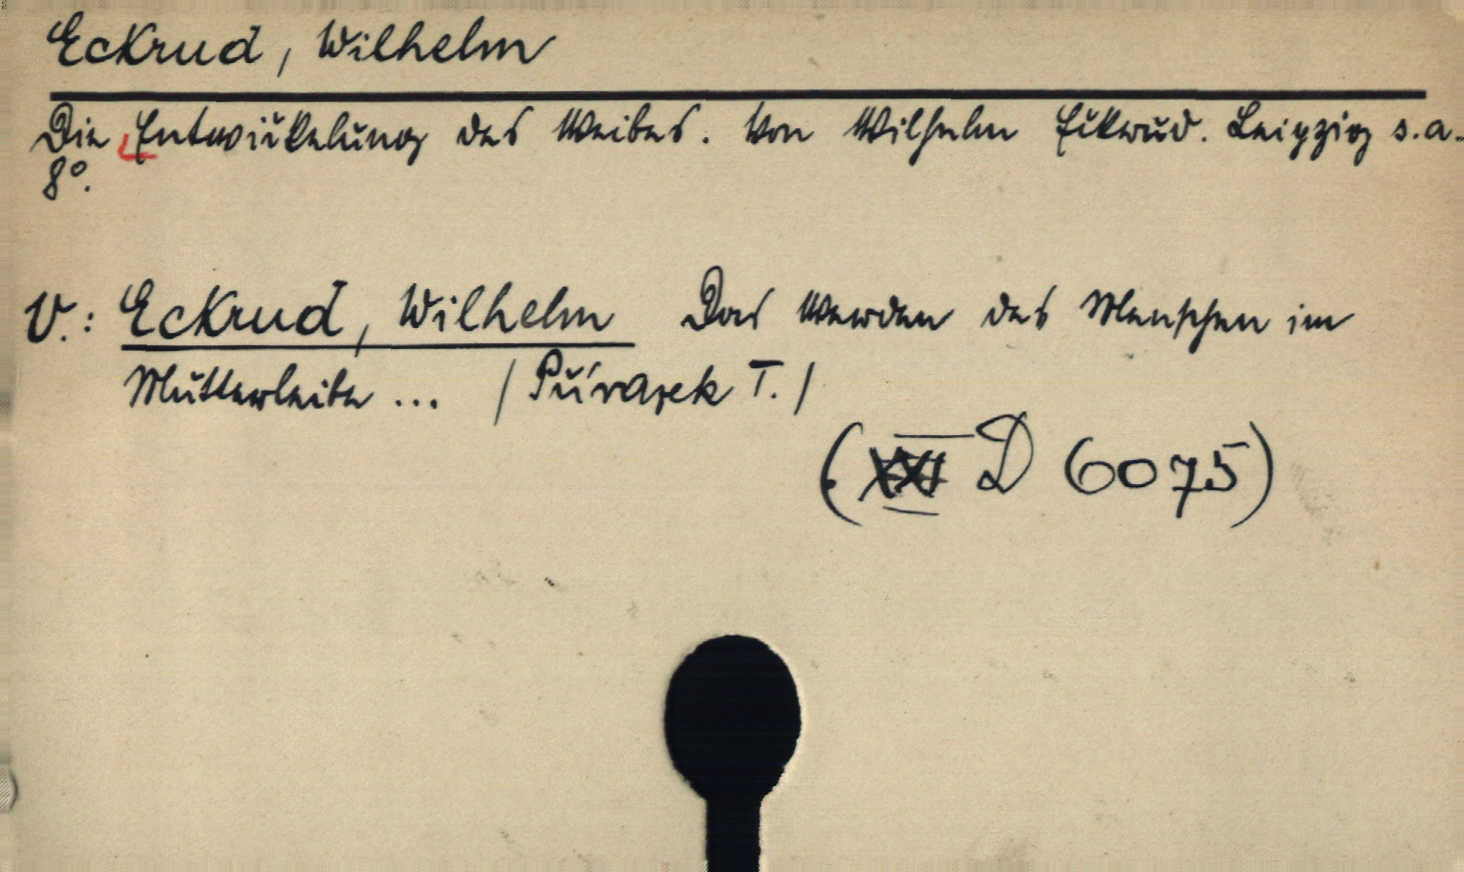 Eckrud, Wilhelm
Die Entwickelung des Weibes. Von Wilhelm Eckrud. Leipzig s.a.
8°.
V.: Eckrud, Wilhelm Das Werden des Menschen im
Mutterleibe ... / Přívazek T. /
(XXI D 6075)